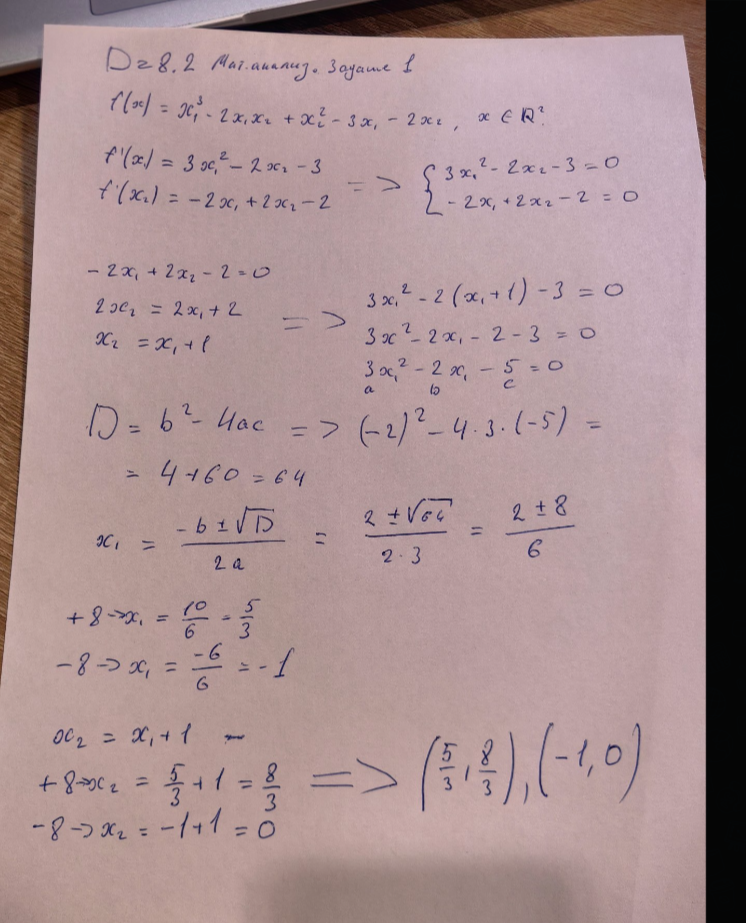 Dz 8.2 Мат.анализ. Задание 1
f(x) = x₁³ - 2x₁x₂ + x₂² - 3x₁ - 2x₂, x ∈ ℝ².
f'(x) = 3x₁² - 2x₂ - 3 => { 3x₁² - 2x₂ - 3 = 0
f'(x₂) = -2x₁ + 2x₂ - 2 - 2x₁ + 2x₂ - 2 = 0
- 2x₁ + 2x₂ - 2 = 0
2x₂ = 2x₁ + 2 =>
x₂ = x₁ + 1
3x₁² - 2(x₁ + 1) - 3 = 0
3x² - 2x₁ - 2 - 3 = 0
3x₁² - 2x₁ - 5 = 0
a b c
D = b² - 4ac => (-2)² - 4·3·(-5) =
= 4 + 60 = 64
x₁ = (-b ± √D) / 2a = (2 ± √64) / 2·3 = (2 ± 8) / 6
+8 -> x₁ = 10/6 = 5/3
-8 -> x₁ = -6/6 = -1
x₂ = x₁ + 1 -
+8 -> x₂ = 5/3 + 1 = 8/3 => (5/3, 8/3), (-1, 0)
-8 -> x₂ = -1 + 1 = 0